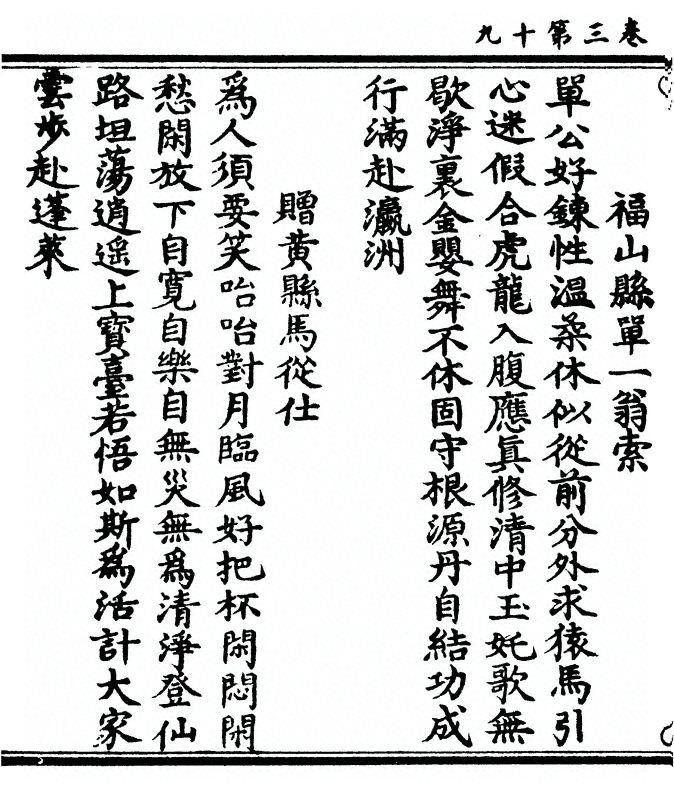 卷三第十九
福山縣單一翁索
單公好鍊性溫柔休似從前分外求猿馬引
心迷假合虎龍入腹應眞修清中玉姹歌無
歇淨裏金嬰舞不休固守根源丹自結功成
行滿赴瀛洲
贈黃縣馬從仕
爲人須要笑咍咍對月臨風好把杯閑悶閑
愁閑放下自寬自樂自無災無爲清淨登仙
路坦蕩逍遥上寶臺若悟如斯爲活計大家
雲步赴蓬萊